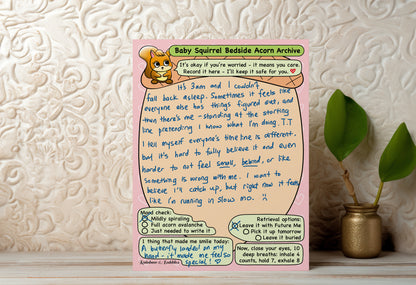 Baby Squirrel Bedside Acorn Archive
It's okay if you're worried - it means you care.
Record it here - I'll keep it safe for you.
It's 3am and I couldn't
fall back asleep. Sometimes it feels like
everyone else has things figured out, and
then there's me - standing at the starting
line pretending I know what I'm doing. T.T
I tell myself everyone's timeline is different,
but it's hard to fully believe it and even
harder to not feel small, behind, or like
something is wrong with me. I want to
believe I'll catch up, but right now it feels
like I'm running in slow mo. :(
Mood check:
Mildly spiraling
Full acorn avalanche
Just needed to write it
Retrieval options:
Leave it with Future Me
Pick it up tomorrow
Leave it buried
1 thing that made me smile today:
A butterfly landed on my
hand - it made me feel so
special! ♡
Now, close your eyes, 10
deep breaths: inhale 4
counts, hold 7, exhale 8